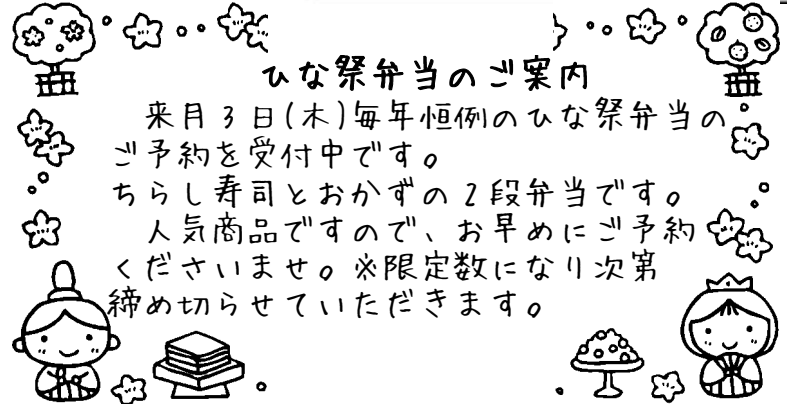 ひな祭弁当のご案内
来月3日(木)毎年恒例のひな祭弁当の
ご予約を受付中です。
ちらし寿司とおかずの2段弁当です。
人気商品ですので、お早めにご予約
くださいませ。※限定数になり次第
締め切らせていただきます。